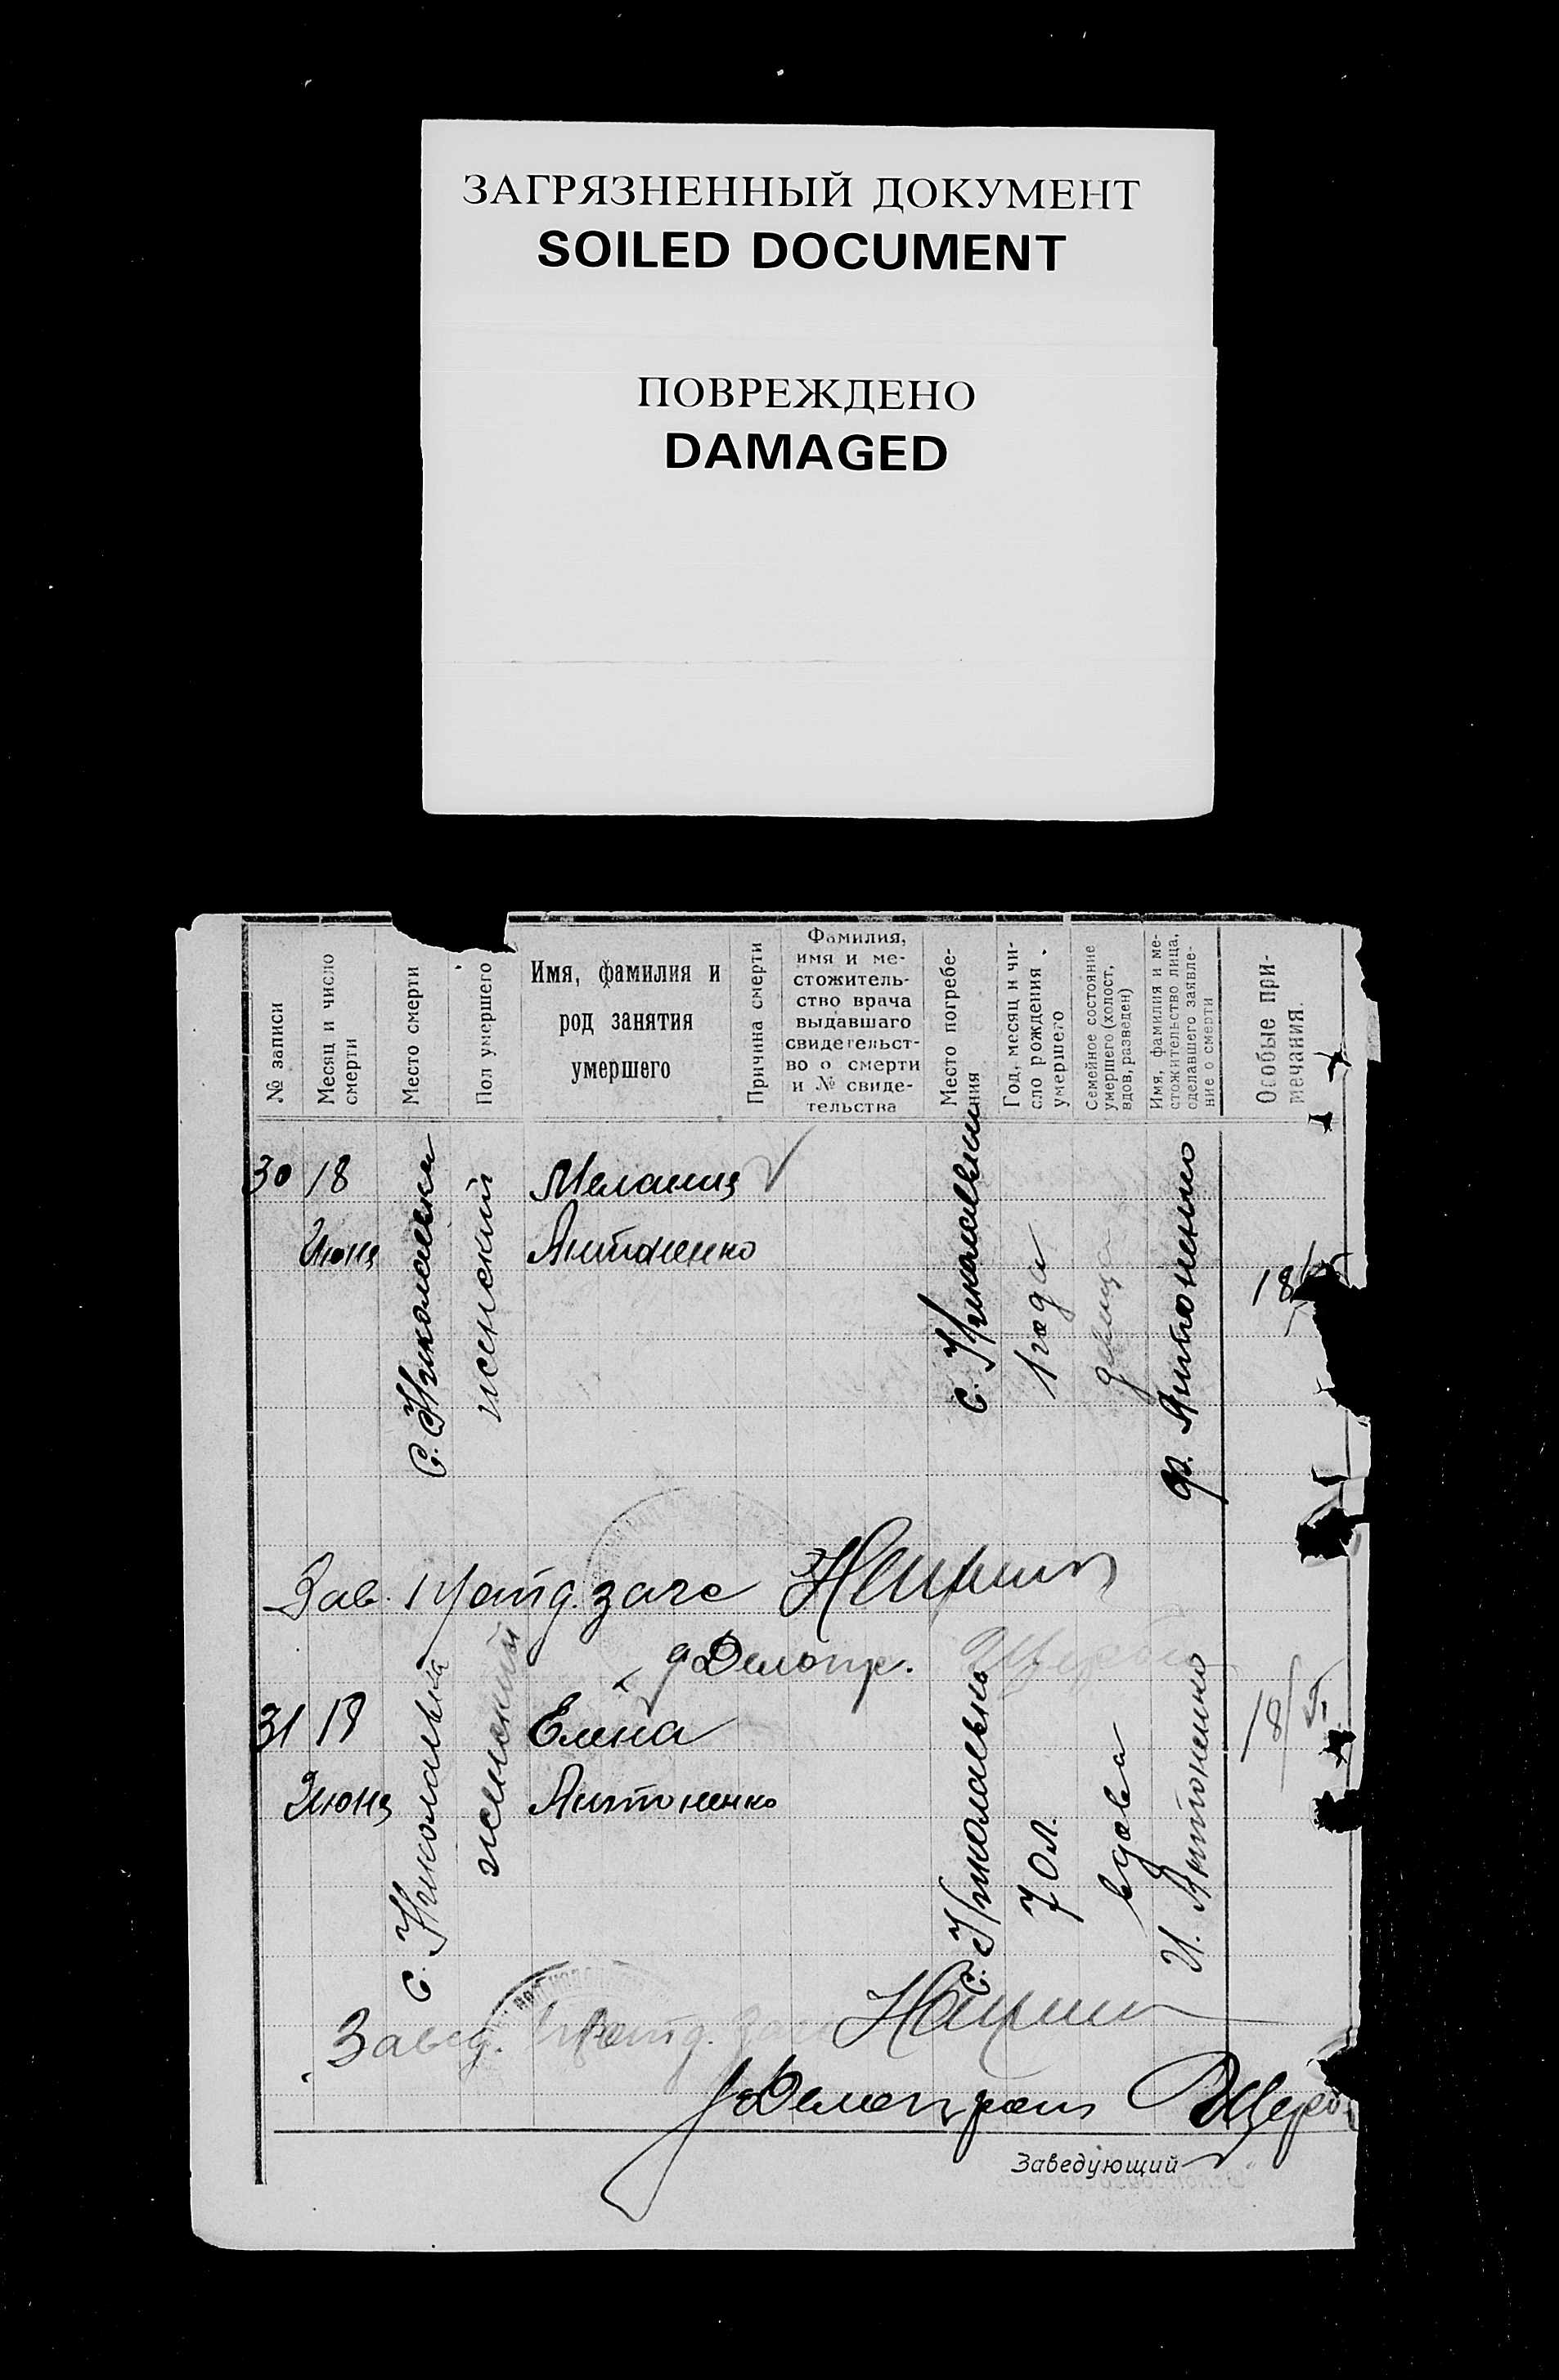 ЗАГРЯЗНЕННЫЙ ДОКУМЕНТ
SOILED DOCUMENT
ПОВРЕЖДЕНО
DAMAGED
№ записи
Месяц и число
смерти
Место смерти
Пол умершего
Имя, фамилия и
род занятия
умершего
Причина смерти
Фамилия,
имя и ме-
стожитель-
ство врача
выдавшаго
свидетельст-
во о смерти
и № свиде-
тельства
Место погребе-
ния
Год, месяц и чи-
сло рождения
умершего
Семейное состояние
умершего (холост,
вдов, разведен)
Имя, фамилия и ме-
стожительство лица,
сделавшего заявле-
ние о смерти
Особые при-
мечания.
30
18
Июня
с. Николаевка
женский
Мелания
Антоненко
с. Николаевки
1 года
девица
Ф. Антоненко
18
Зав. отд. загс
Делопр.
31
19
Июня
с. Николаевка
женский
Елена
Антоненко
с. Николаевке
70 л.
вдова
И. Антоненко
18
Завед. отд.
Делопроиз
Заведующий